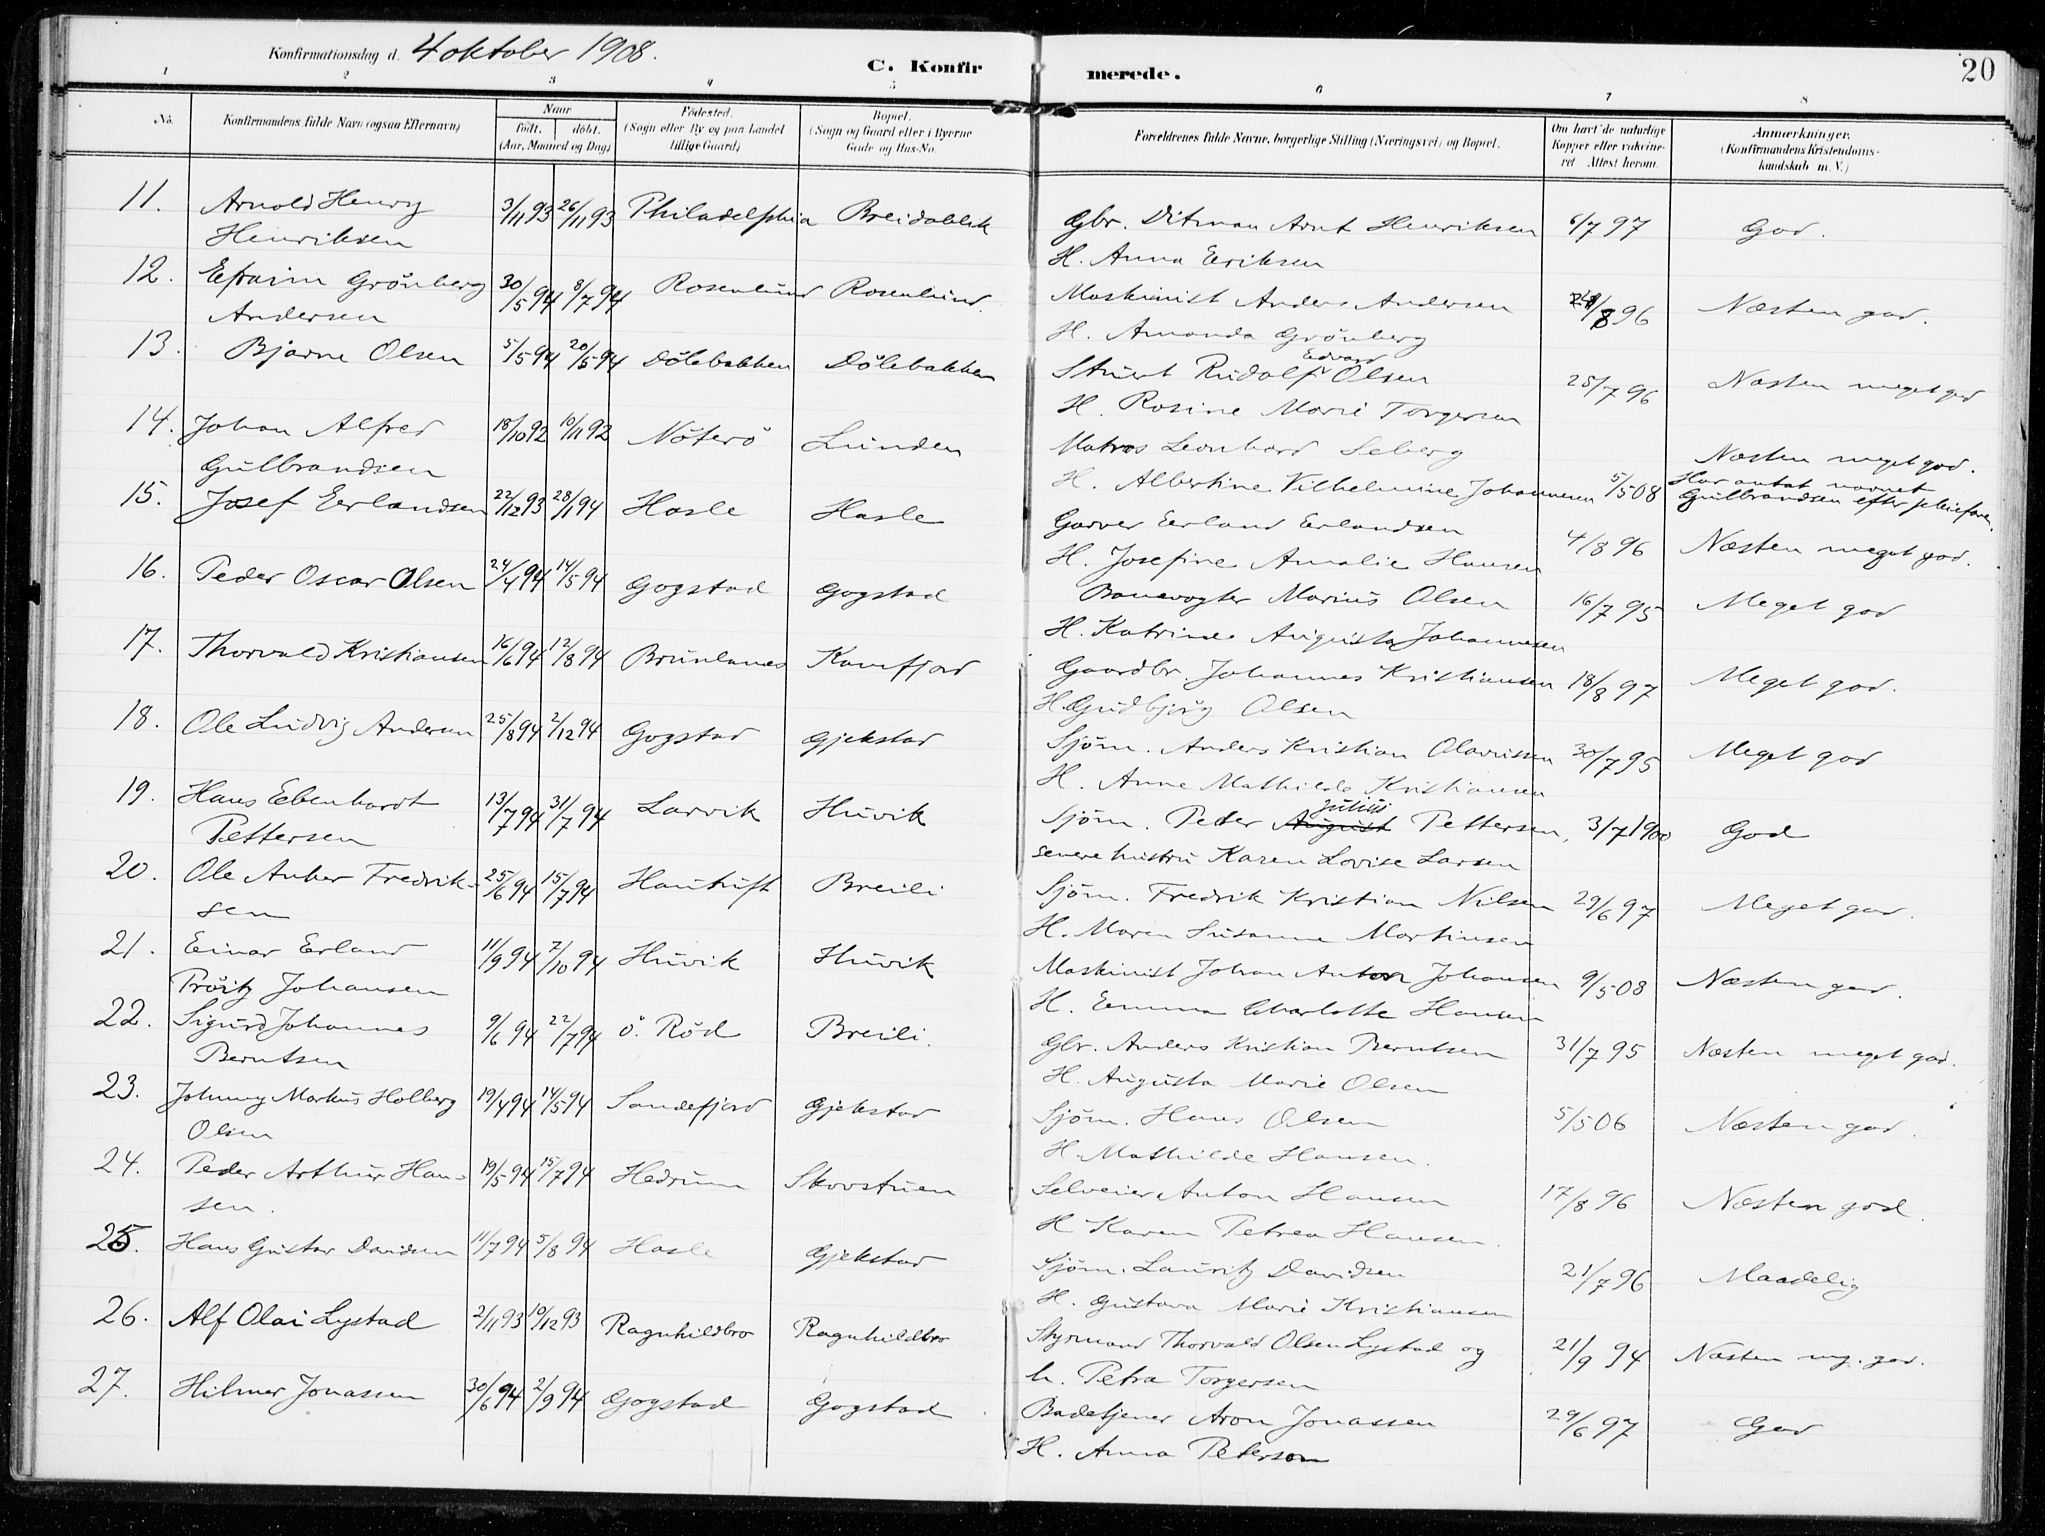 Konfirmationsdag d. 4 oktober 1908.
C. Konfirmerede.
20
1 2 3 4 5 6 7 8
No. Konfirmandens fulde Navn (ogsaa Efternavn) Naar født. døbt. (Aar, Maaned og Dag) Fødested. (Sogn eller By og paa Landet tillige Gaard) Bopæl. (Sogn og Gaard eller i Byerne Gade og Hus-No. Forældrenes fulde Navne, borgerlige Stilling (Næringsvei) og Bopæl. Om havt de naturlige Kopper eller vakcineret. Attest herom. Anmærkninger. (Konfirmandens Kristendomskundskab m. V.)
11. Arnold Henry 3/11 93 26/11 93 Philadelphia Breidablik Gbr. Ditman Arnt Henriksen 6/7 97 God.
Henriksen H. Anna Eriksen
12. Efraim Grönberg 30/5 94 8/7 94 Rosenlund Rosenlund. Maskinist Anders Andersen /8 96 Næsten god.
Andersen H. Amanda Grönberg
13. Bjarne Olsen 5/5 94 20/5 94 Dölebakken Dölebakken Stuert Rudolf Edvard Olsen 25/7 96 Næsten meget god
H. Rosine Marie Torgersen
14. Johan Alfred 18/10 92 10/11 92 Nöterö Lunden Matros Leonhard Seberg Næsten meget god.
Gulbrandsen H. Albertine Vilhelmine Johannesen 5/5 08 Har antat navnet Gulbrandsen efter pleiefar.
15. Josef Erlandsen 22/12 93 28/1 94 Hasle Hasle Garver Erland Erlandsen 4/8 96 Næsten meget god.
H. Josefine Amalie Hansen
16. Peder Oscar Olsen 24/4 94 14/5 94 Gogstad Gogstad Banevogter Marius Olsen 16/7 95 Meget god
H. Katrine Augusta Johannesen
17. Thorvald Kristiansen 16/6 94 12/8 94 Brunlanes Kamfjord Gaardbr. Johannes Kristiansen 18/8 97 Meget god.
H. Gudbjörg Olsen
18. Ole Ludvig Andersen 25/8 94 2/12 94 Gogstad Gjekstad Sjøm. Anders Kristian Olavussen 30/7 95 Meget god
H. Anne Mathilde Kristiansen
19. Hans Ebenhardt 13/7 94 31/7 94 Larvik Huvik Sjøm. Peder August Julius Pettersen, 3/7 1900 God
Pettersen senere hustru Karen Lovise Larsen
20. Ole Anker Fredrik- 25/6 94 15/7 94 Hautuft Breili Sjøm. Fredrik Kristian Nilsen 29/6 97 Meget god.
sen H. Maren Susanne Martinsen
21. Einar Erland 11/9 94 7/10 94 Huvik Huvik Maskinist Johan Anton Johansen 9/5 08 Næsten god.
Pröitz Johansen H. Emma Charlotte Hansen
22. Sigurd Johannes 9/6 94 22/7 94 ö. Röd Breili. Gbr. Anders Kristian Berntsen 31/7 95 Næsten meget god.
Berntsen H. Augusta Marie Olsen
23. Johnny Markus Holberg 19/4 94 14/5 94 Sandefjord Gjekstad Sjøm. Hans Olsen 5/5 06 Næsten god.
Olsen H. Mathilde Hansen.
24. Peder Arthur Han- 19/5 94 15/7 94 Hedrum Skovstuen Selveier Anton Hansen 17/8 96 Næsten god.
sen. H Karen Petrea Hansen.
25. Hans Gustav Davidsen 11/7 94 5/8 94 Hasle Gjekstad Sjøm. Lauritz Davidsen 21/7 96 Maadelig
H. Gustava Marie Kristiansen
26. Alf Olai Lystad 2/11 93 10/12 93 Ragnhildbro Ragnhildbro Styrmand Thorvald Olsen Lystad og 21/9 94 Næsten mg. god.
h. Petra Torgersen
27. Hilmer Jonassen 30/6 94 2/9 94 Gogstad Gogstad Badetjener Aron Jonassen 29/6 97 God
H. Anna Peterson